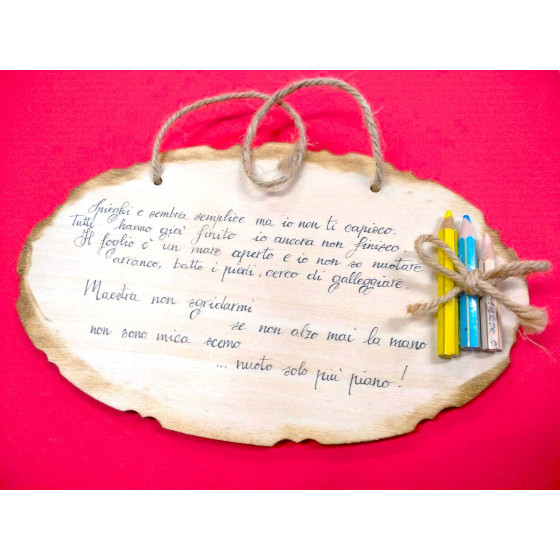 Spieghi e sembra semplice ma io non ti capisco.
Tutti hanno già finito io ancora non finisco.
Il foglio è un mare aperto e io non so nuotare
arranco, batto i piedi, cerco di galleggiare.
Maestra non sgridarmi
se non alzo mai la mano
non sono mica scemo
... nuoto solo più piano!